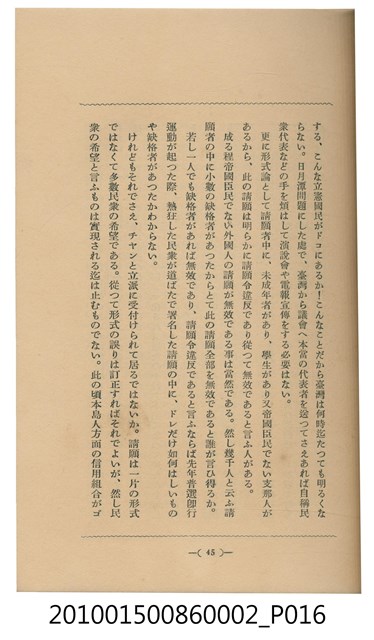 する、こんな立憲國民がドコにあるか！こんなことだから臺灣は何時迄たつても明るくな
らない。日月潭問題にした處で、臺灣から議會へ本當の代表者を送つてさえあれば自稱民
衆代表などの手を煩はして演說會や電報宣傳をする必要はない。
更に形式論として請願者中に、未成年者があり、學生があり又帝國臣民でない支那人が
あるから、此の請願は明らかに請願令違反であり從つて無效であると言ふ人がある。
成る程帝國臣民でない外國人の請願が無效である事は當然である。然し幾千人と云ふ請
願者の中に小數の缺格者があつたからとて此の請願全部を無效であると誰が言ひ得るか。
若し一人でも缺格者があれば無效であり、請願令違反であると言ふならば先年普選卽行
運動が起つた際、熱狂した民衆が道ばたで署名した請願の中に、ドレだけ如何はしいもの
や缺格者があつたかわからない。
けれどもそれでさえ、チヤンと立派に受付けられて居るではないか。請願は一片の形式
ではなくて多數民衆の希望である。從つて形式の誤りは訂正すればそれでよいが、然し民
衆の希望と言ふものは實現される迄は止むものでない。此の頃本島人方面の信用組合がゴ
—( 45 )—
201001500860002_P016